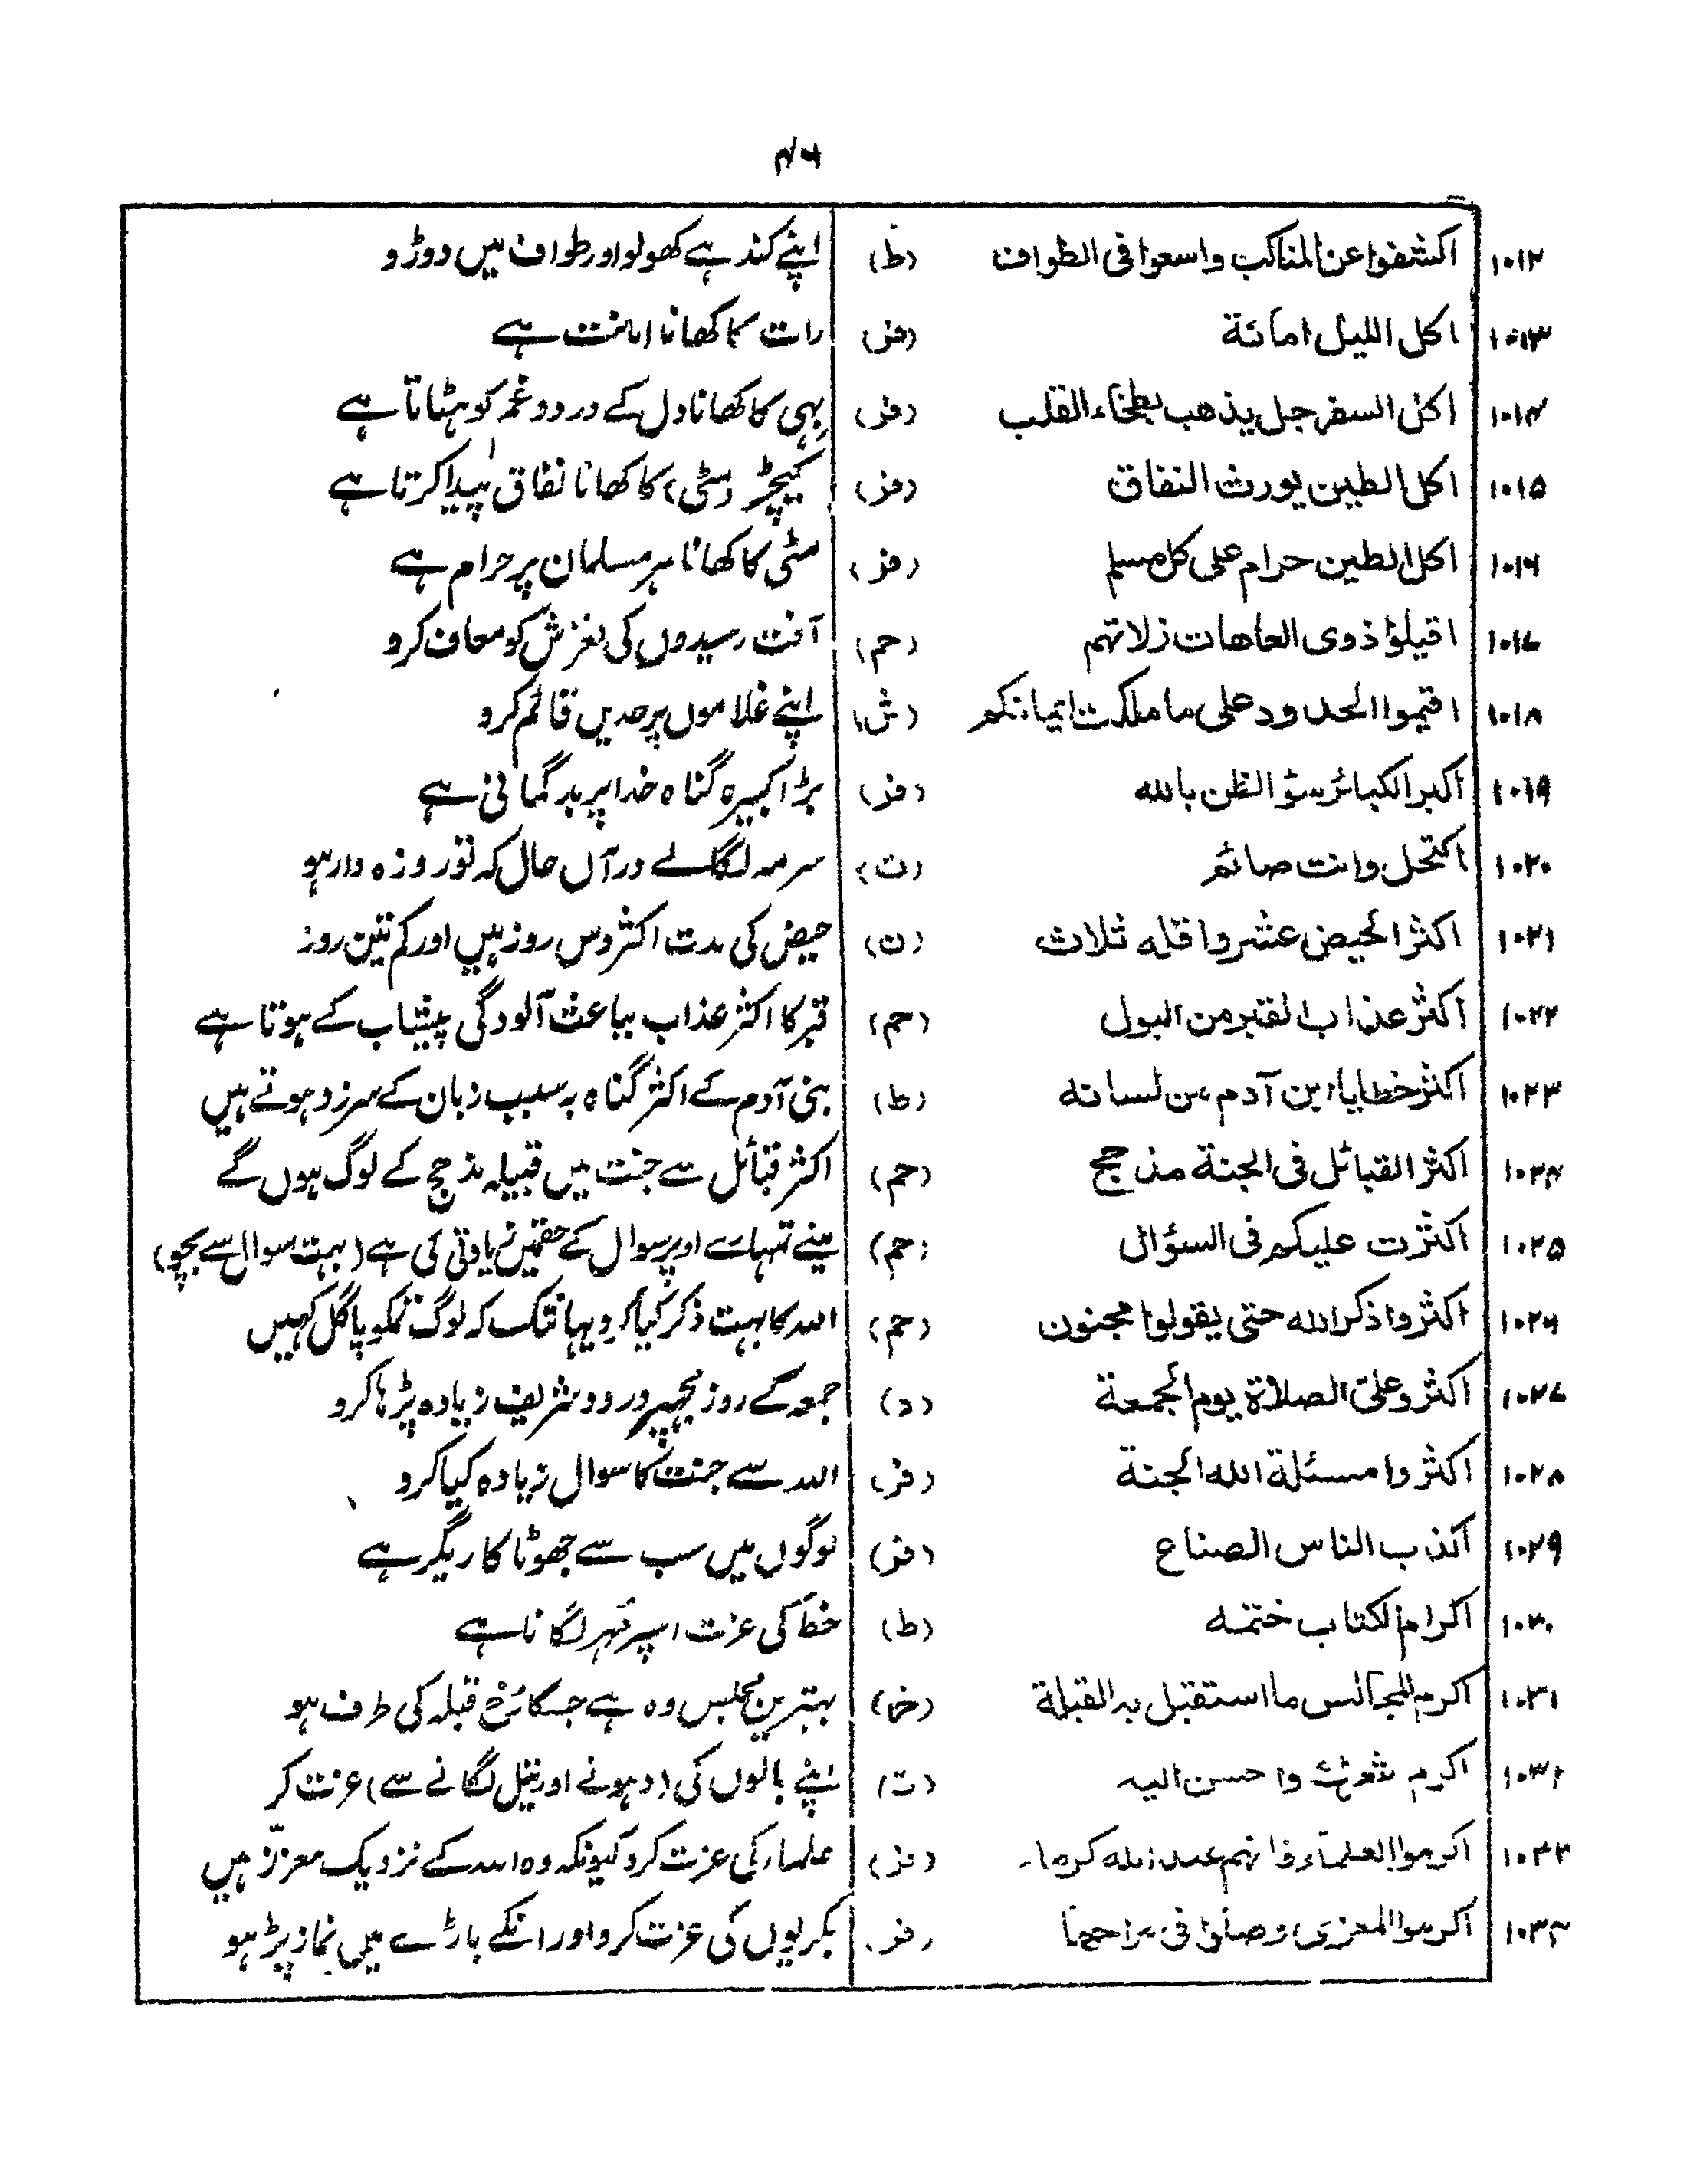 ۷۶
۱۰۱۲ اکشفوا عن المناکب واسعوا فی الطواف (ط) اپنے کندہے کھولو اور طواف میں دوڑو
۱۰۱۳ اکل اللیل امانة (فر) رات کا کھانا امانت ہے
۱۰۱۴ اکل السفرجل یذهب بطخاء القلب (فر) بہی کا کھانا دل کے درد و غم کو ہٹاتا ہے
۱۰۱۵ اکل الطین یورث النفاق (فر) کیچڑ (مٹی) کا کھانا نفاق پیدا کرتا ہے
۱۰۱۶ اکل الطین حرام علی کل مسلم (فر) مٹی کا کھانا ہر مسلمان پر حرام ہے
۱۰۱۷ اقیلوا ذوی العاهات زلاتهم (حم) آفت رسیدوں کی لغزش کو معاف کرو
۱۰۱۸ اقیموا الحدود علی ما ملکت ایمانکم (ش) اپنے غلاموں پر حدیں قائم کرو
۱۰۱۹ اکبر الکبائر سؤ الظن بالله (فر) بڑا کبیرہ گناہ خدا پر بدگمانی ہے
۱۰۲۰ اکتحل وانت صائم (ن) سرمہ لگالے درآں حال کہ تو روزہ دار ہو
۱۰۲۱ اکثر الحیض عشر واقله ثلاث (ن) حیض کی مدت اکثر دس روز ہیں اور کم تین روز
۱۰۲۲ اکثر عذاب القبر من البول (حم) قبر کا اکثر عذاب بباعث آلودگی پیشاب کے ہوتا ہے
۱۰۲۳ اکثر خطایا ابن آدم من لسانه (ط) بنی آدم کے اکثر گناہ بہ سبب زبان کے سرزد ہوتے ہیں
۱۰۲۴ اکثر القبائل فی الجنة مذحج (حم) اکثر قبائل سے جنت میں قبیلہ مذحج کے لوگ ہوں گے
۱۰۲۵ اکثرت علیکم فی السؤال (حم) مینے تمہارے اوپر سوال کے حقمیں زیادتی کی ہے (بہت سوال سے بچو)
۱۰۲۶ اکثروا ذکر الله حتی یقولوا مجنون (حم) اللہ کا بہت ذکر کیا کرو یہانتک کہ لوگ تمکو پاگل کہیں
۱۰۲۷ اکثروا علیّ الصلاة یوم الجمعة (د) جمعہ کے روز مجہپر درود شریف زیادہ پڑہا کرو
۱۰۲۸ اکثروا مسئلة الله الجنة (فر) اللہ سے جنت کا سوال زیادہ کیا کرو
۱۰۲۹ اکذب الناس الصناع (فر) لوگوں میں سب سے جھوٹا کاریگر ہے
۱۰۳۰ اکرام الکتاب ختمه (ط) خط کی عزت اسپر مُہر لگانا ہے
۱۰۳۱ اکرم المجالس ما استقبل به القبلة بہترین مجلس وہ ہے جسکا رُخ قبلہ کی طرف ہو
۱۰۳۲ اکرم شعرك واحسن الیه (ت) اپنے بالوں کی (دہونے اور تیل لگانے سے) عزت کر
۱۰۳۳ اکرموا العلماء فانهم عند الله کرماء (فر) علماء کی عزت کرو کیونکہ وہ اللہ کے نزدیک معزّز ہیں
۱۰۳۴ اکرموا المعزی وصلوا فی مراحها (فر) بکریوں کی عزت کرو اور انکے باڑے میں نماز پڑہو